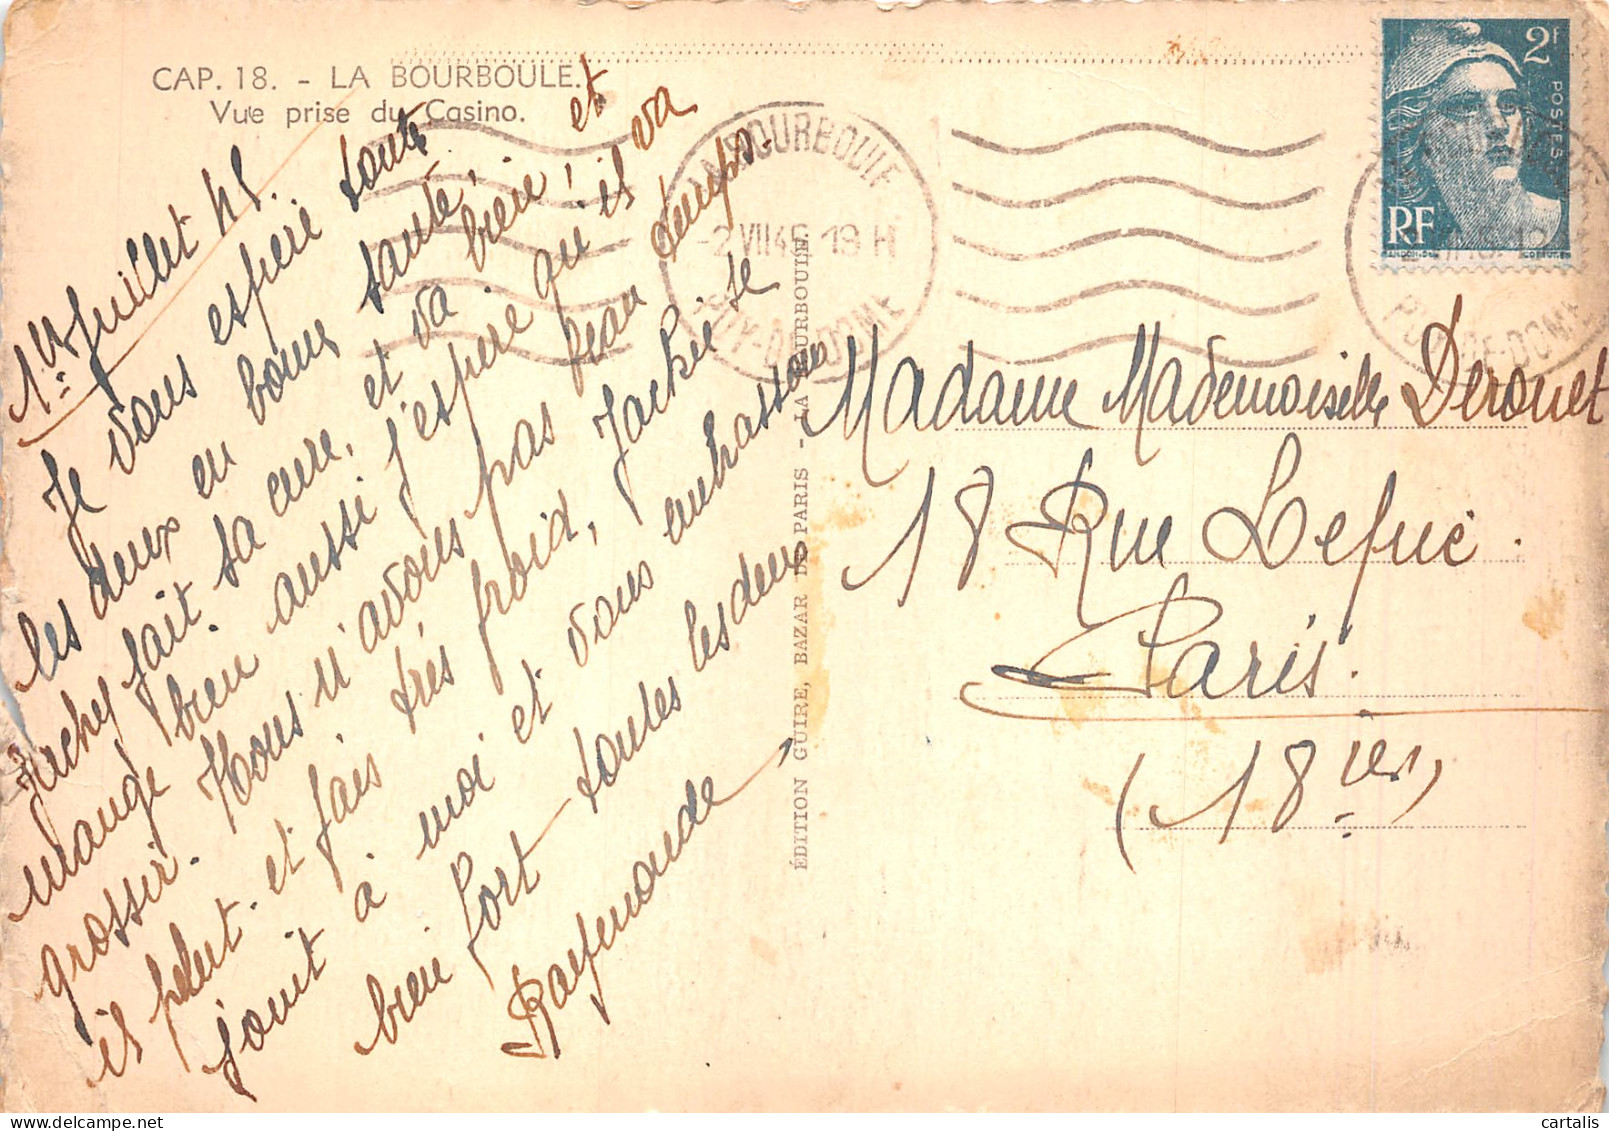 CAP. 18. - LA BOURBOULE.
Vue prise du Casino.
1er Juillet 45.
Je vous espère toute
les deux en bonne santé,
Jackey fait sa cure, et va bien, et
mange bien aussi j'espère qu'il va
grossir. Nous n'avons pas beau temps.
il pleut et fais très froid, Jackie se
jouit à moi et vous embrassons
bien fort toutes les deux
Raymonde
ÉDITION GUIRE, BAZAR DE PARIS - LA BOURBOULE.
LA BOURBOULE
-2 VII 45 19 H
PUY-DE-DOME
2F
POSTES
RF
GANDON
PUY-DE-DOME
Madame Mademoiselle Derouet
18 Rue Lefuic.
Paris.
(18 ier)
cartalis